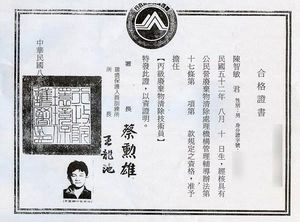 合格證書
陳智敏 君 性別：男 身分證字號：
民國五十二年 八月 十 日生，經核具有
公民營廢棄物清除處理機構管理輔導辦法第
十七條第 項第 款規定之資格，准予
擔任
【丙級廢棄物清除技術員】
特發此證，以資證明。
署長 蔡勲雄
環境保護人員訓練所
所長 王龍池
中華民國八